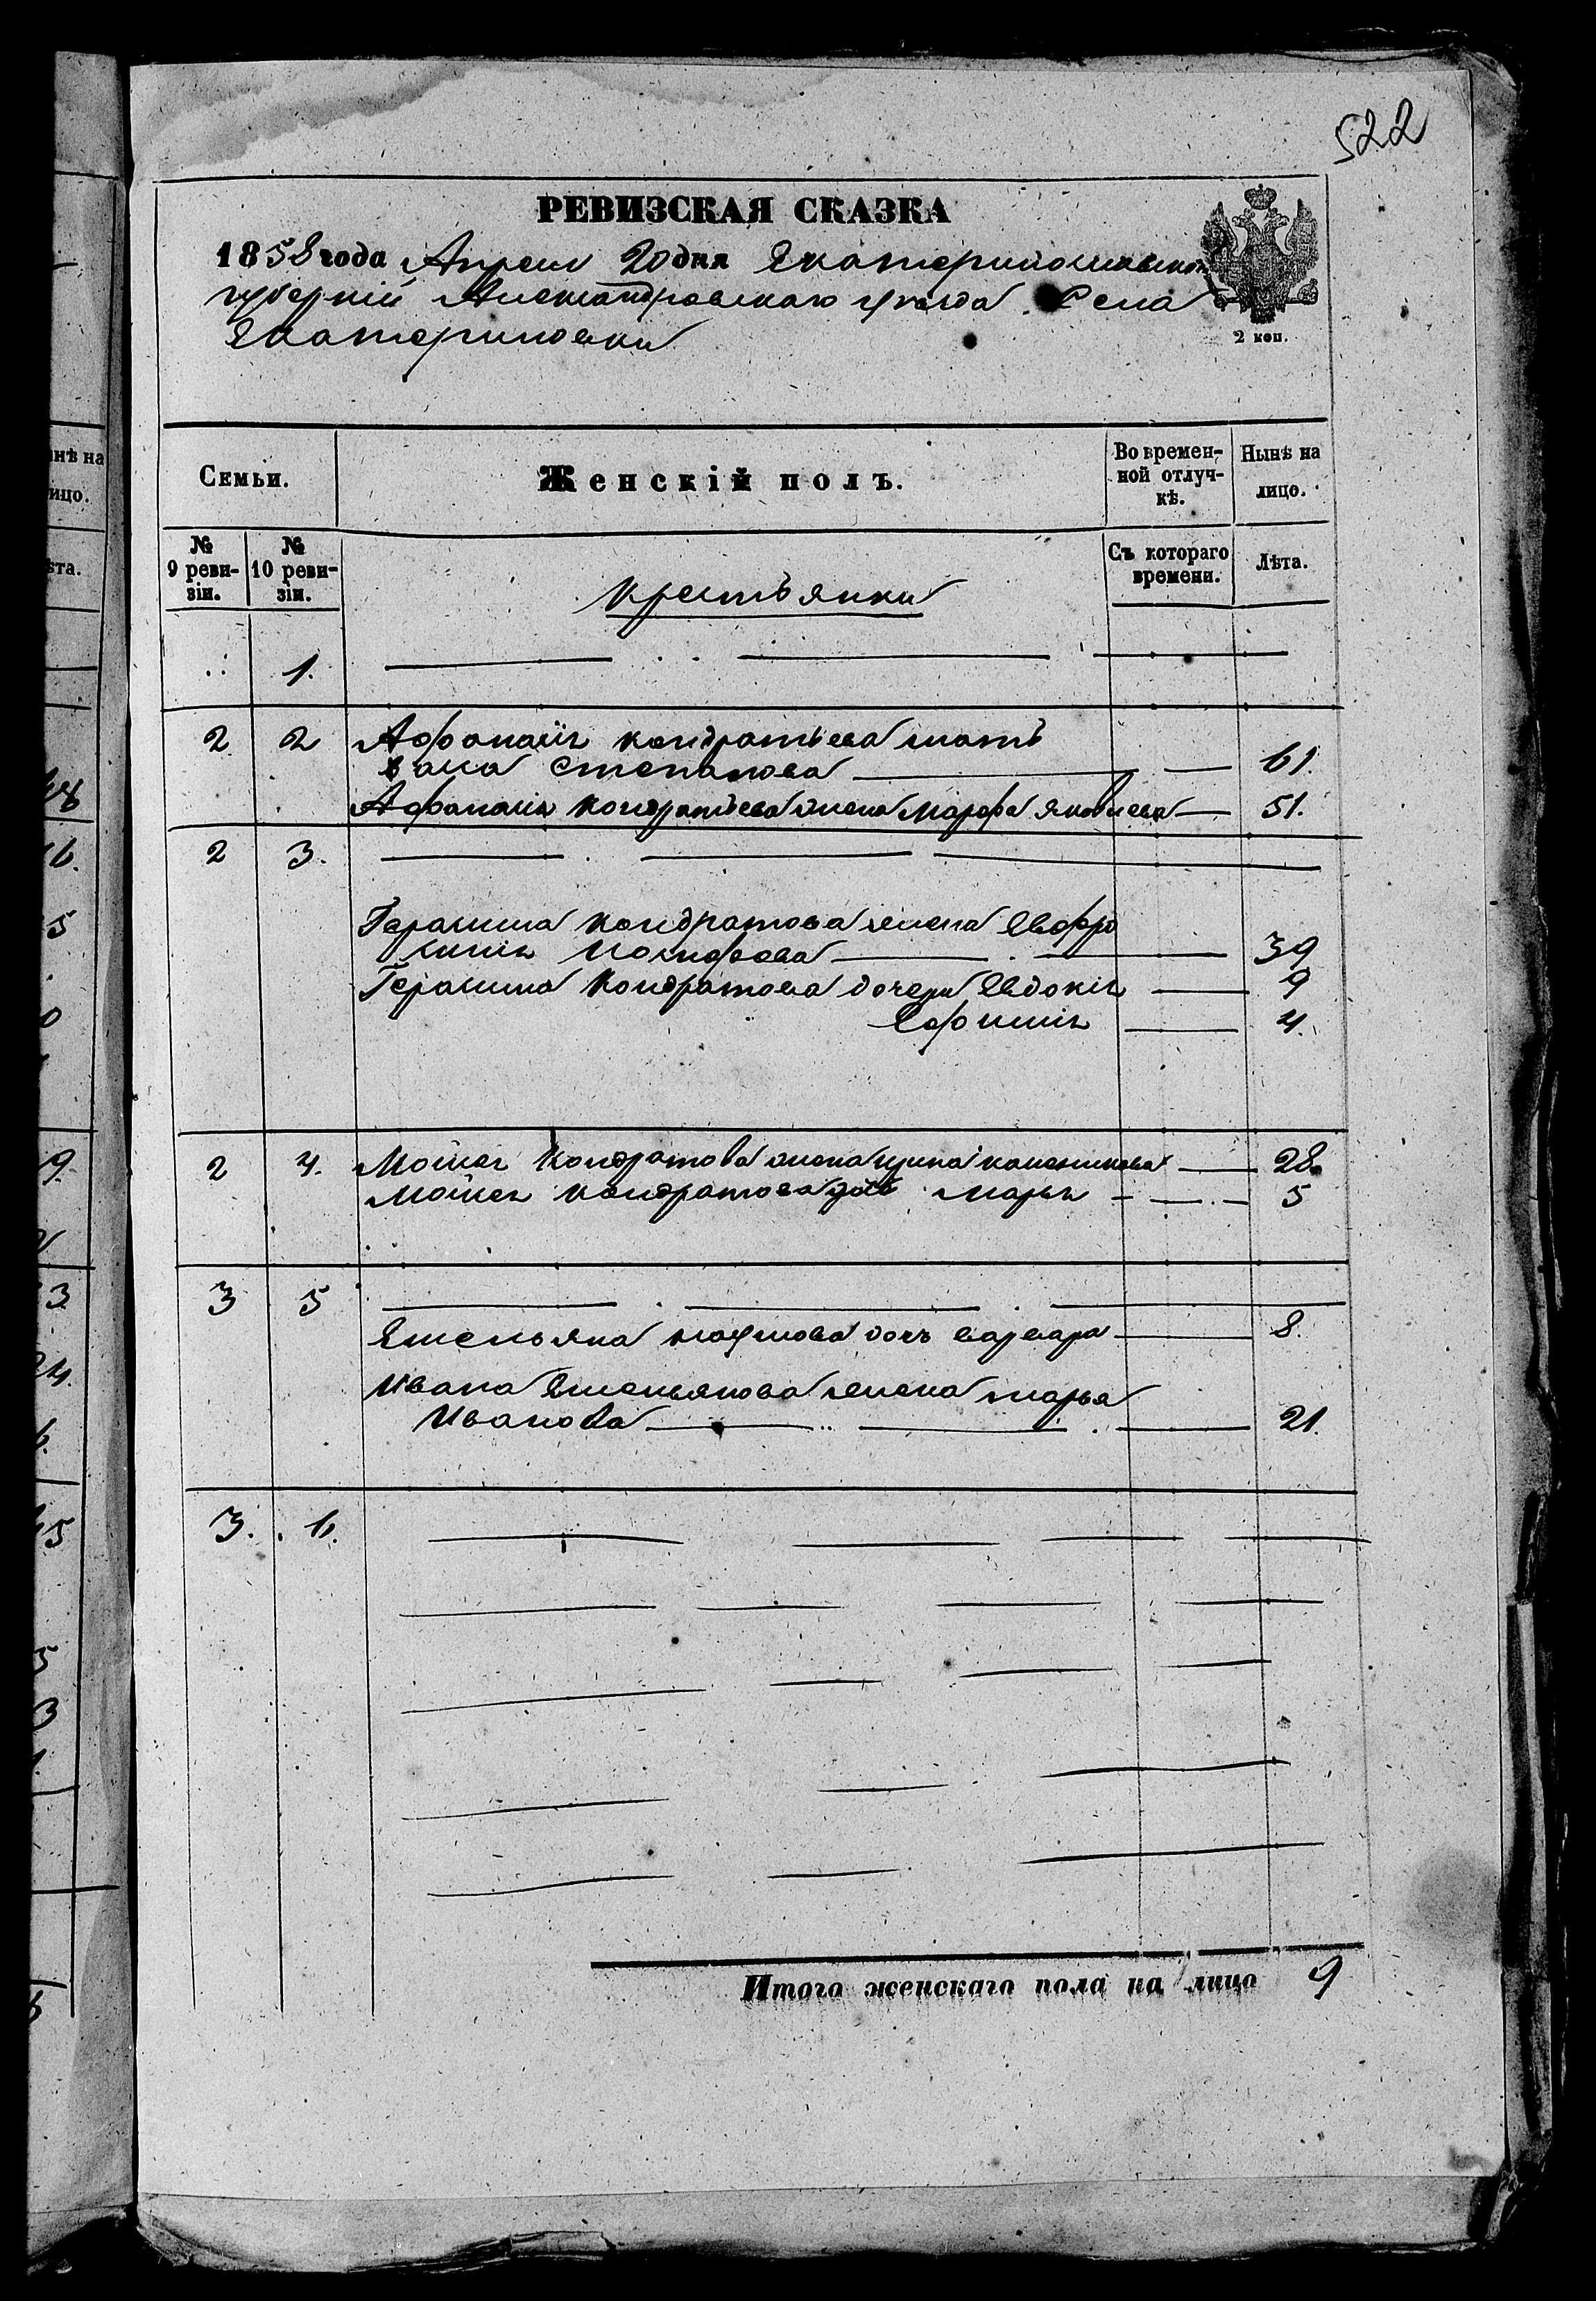 522
РЕВИЗСКАЯ СКАЗКА
1858 года Апреля 20 дня Екатеринославской
губерніи Александровскаго уѣзда Села
Екатериновки
2 коп.
Семьи.
Женскій полъ.
Во времен-
ной отлуч-
кѣ.
Нынѣ на
лицо.
№
9 реви-
зіи.
№
10 реви-
зіи.
Крестьянки
Съ котораго
времени.
Лѣта.
1.
2 2 Афанасія Кондратьева мать
Степанова 61.
Афанасія Кондратьева жена Марфа Яковлева 51.
2 3.
Герасима Кондратова жена Евфро
синія Іосифова 39
Герасима Кондратова дочери Евдокія 9
Ефимія 4.
2 4. Мойсея Кондратова жена Ирина 28.
Мойсея Кондратова дочь Марья 5
3 5
Емельяна Наумова дочь Варвара 8.
Ивана Емельянова жена Марья
Иванова 21.
3. 6.
Итого женскаго пола на лицо 9
нѣ на
ицо.
ѣта.
48
16.
5
9.
3
24.
6.
45
5
3
1.